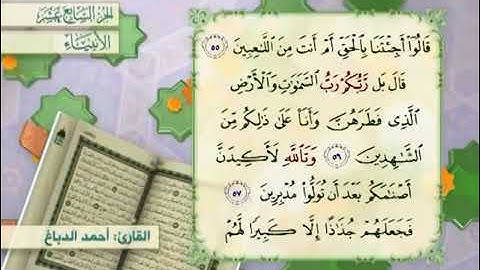 الجزء السابع عشر
الأنبياء
قَالُوٓا۟ أَجِئْتَنَا بِٱلْحَقِّ أَمْ أَنتَ مِنَ ٱللَّٰعِبِينَ ٥٥
قَالَ بَل رَّبُّكُمْ رَبُّ ٱلسَّمَٰوَٰتِ وَٱلْأَرْضِ
ٱلَّذِى فَطَرَهُنَّ وَأَنَا۠ عَلَىٰ ذَٰلِكُم مِّنَ
ٱلشَّٰهِدِينَ ٥٦ وَتَٱللَّهِ لَأَكِيدَنَّ
أَصْنَٰمَكُم بَعْدَ أَن تُوَلُّوا۟ مُدْبِرِينَ ٥٧
فَجَعَلَهُمْ جُذَٰذًا إِلَّا كَبِيرًا لَّهُمْ
القارئ: أحمد الدباغ